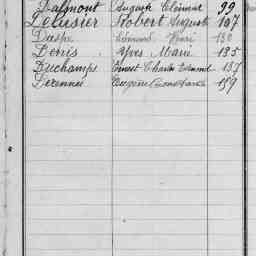 Dalmont Auguste Clément 99
Delusier Robert Auguste 107
Daspe Edmond Henri 130
Denis Yves Marie 135
Duchamps Ernest Charles Edmond 137
Dezennes Eugène Constance 159